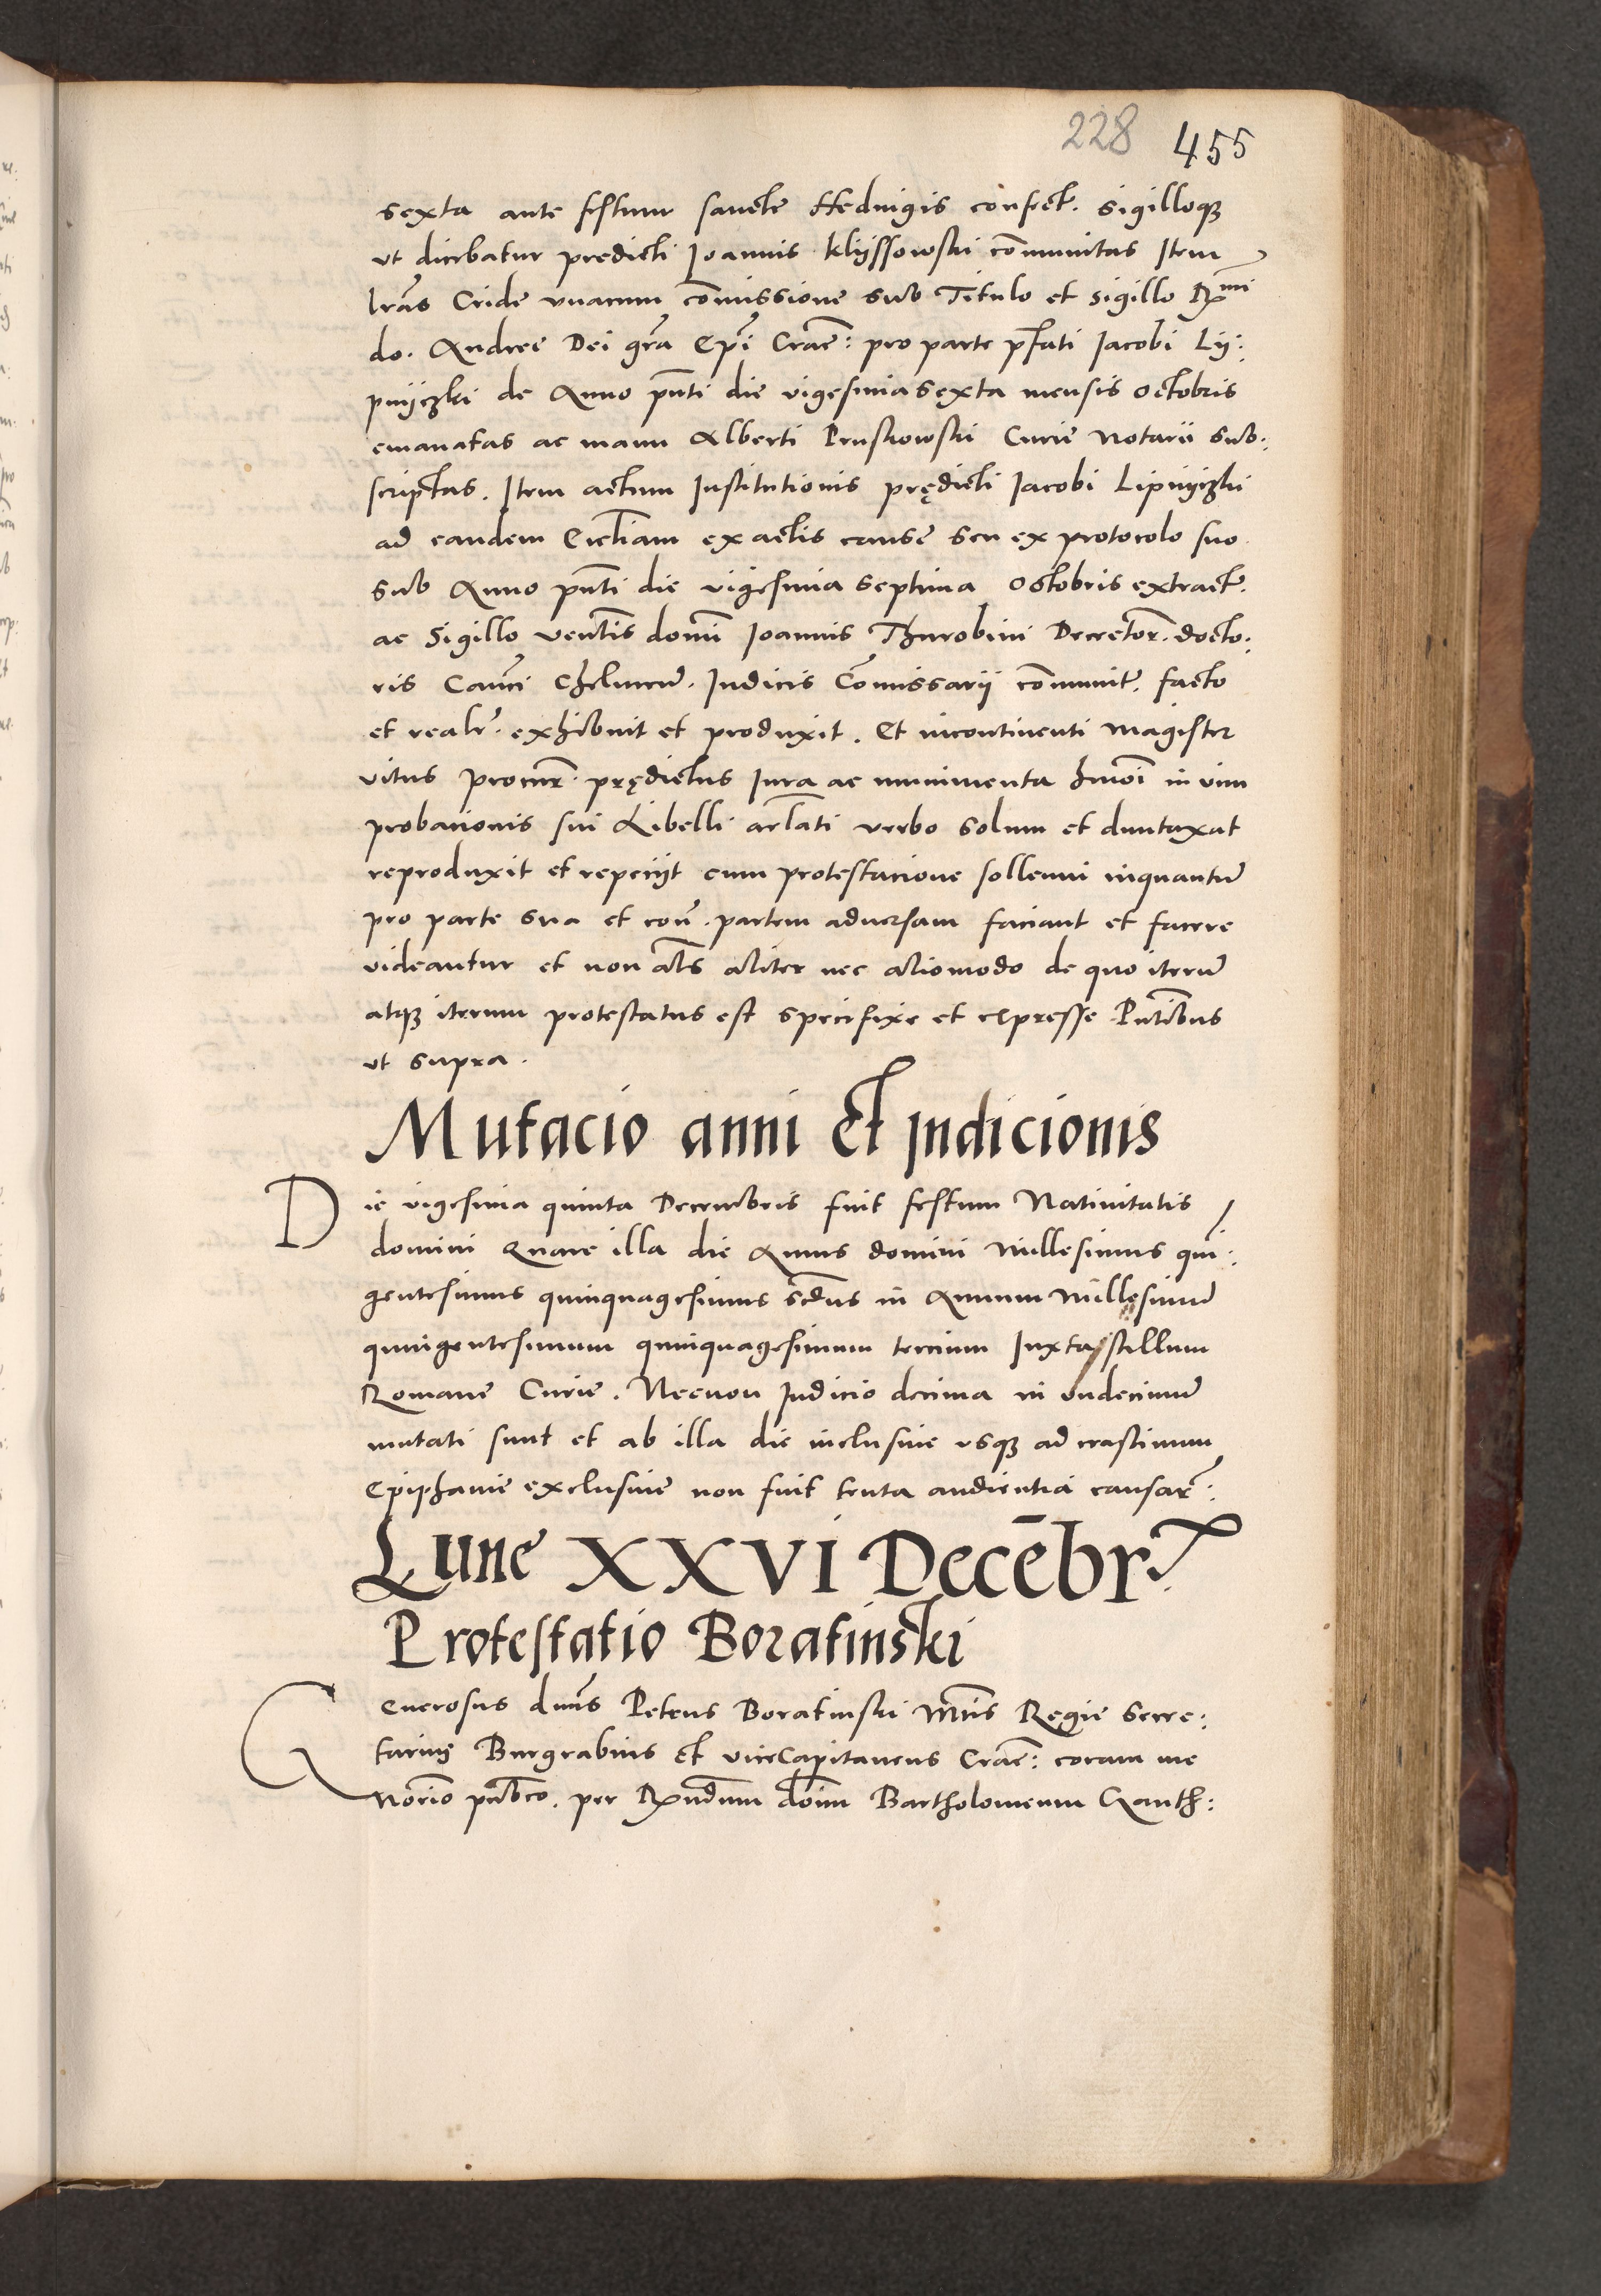 228 455
sexta ante festum sancte Hedvigis confect. sigilloqꝫ
ut dicebatur predicti Joannis Klyssowski com̄unitas Item
lrās Cride vnacum com̄issione sub Titulo et sigillo Rmi
do. Andree Dei grā Epī Crac̄: pro parte pr̄fati Jacobi Ly:
pnyczki de Anno pn̄ti die vigesimasexta mensis Octobris
emanatas ac manu Alberti Pruskowski Curie Notarii sub:
scriptas. Item actum Institutionis prędicti Jacobi Lipnyczki
ad eandem Eccl̄iam ex actis cause seu ex protocolo suo
sub Anno pn̄ti die vigesima septima Octobris extract.
ac Sigillo ven̄tis domī Joannis Thurobini Decretor. docto:
ris Canci Chelmen̄. Judicis Com̄issarij com̄unit. facto
et realr̄. exhibuit et produxit. Et incontinenti Magister
vitus procur̄. prędictus Jura ac munimenta hmōi in vim
probationis sui Libelli arl̄ati verbo solum et duntaxat
reproduxit et repeciit cum protestacione sollenni inquantū
pro parte sua et con̄. partem adversam faciant et facere
videantur et non al̄s aliter nec aliomodo de quo iterū
atqꝫ iterum protestatus est specifixe et expresse Pn̄tibus
ut supra.
Mutacio anni Et Indicionis
Die vigesima quinta Decembris fuit festum Nativitatis
domini Quare illa die Annus domini Millesimus qui:
gentesimus quinquagesimus scd̄us in Annum Millesimū
quingentesimum quinquagesimum tercium Juxta stillum
Romane Curie. Necnon Judicio decima in vndecimū
mutati sunt et ab illa die inclusive usqꝫ ad crastinum
Epiphanie exclusive non fuit tenta audientia causar̄:
Lune XXVI Decēbr.
Protestatio Boratinski
Generosus dnūs Petrus Boratinski Mtis Regie Secre:
tarius Burgrabius Et viceCapitaneus Crac̄: coram me
Norio pub̄co. per Rn̄dum dom̄ Bartholomeum Ganth: